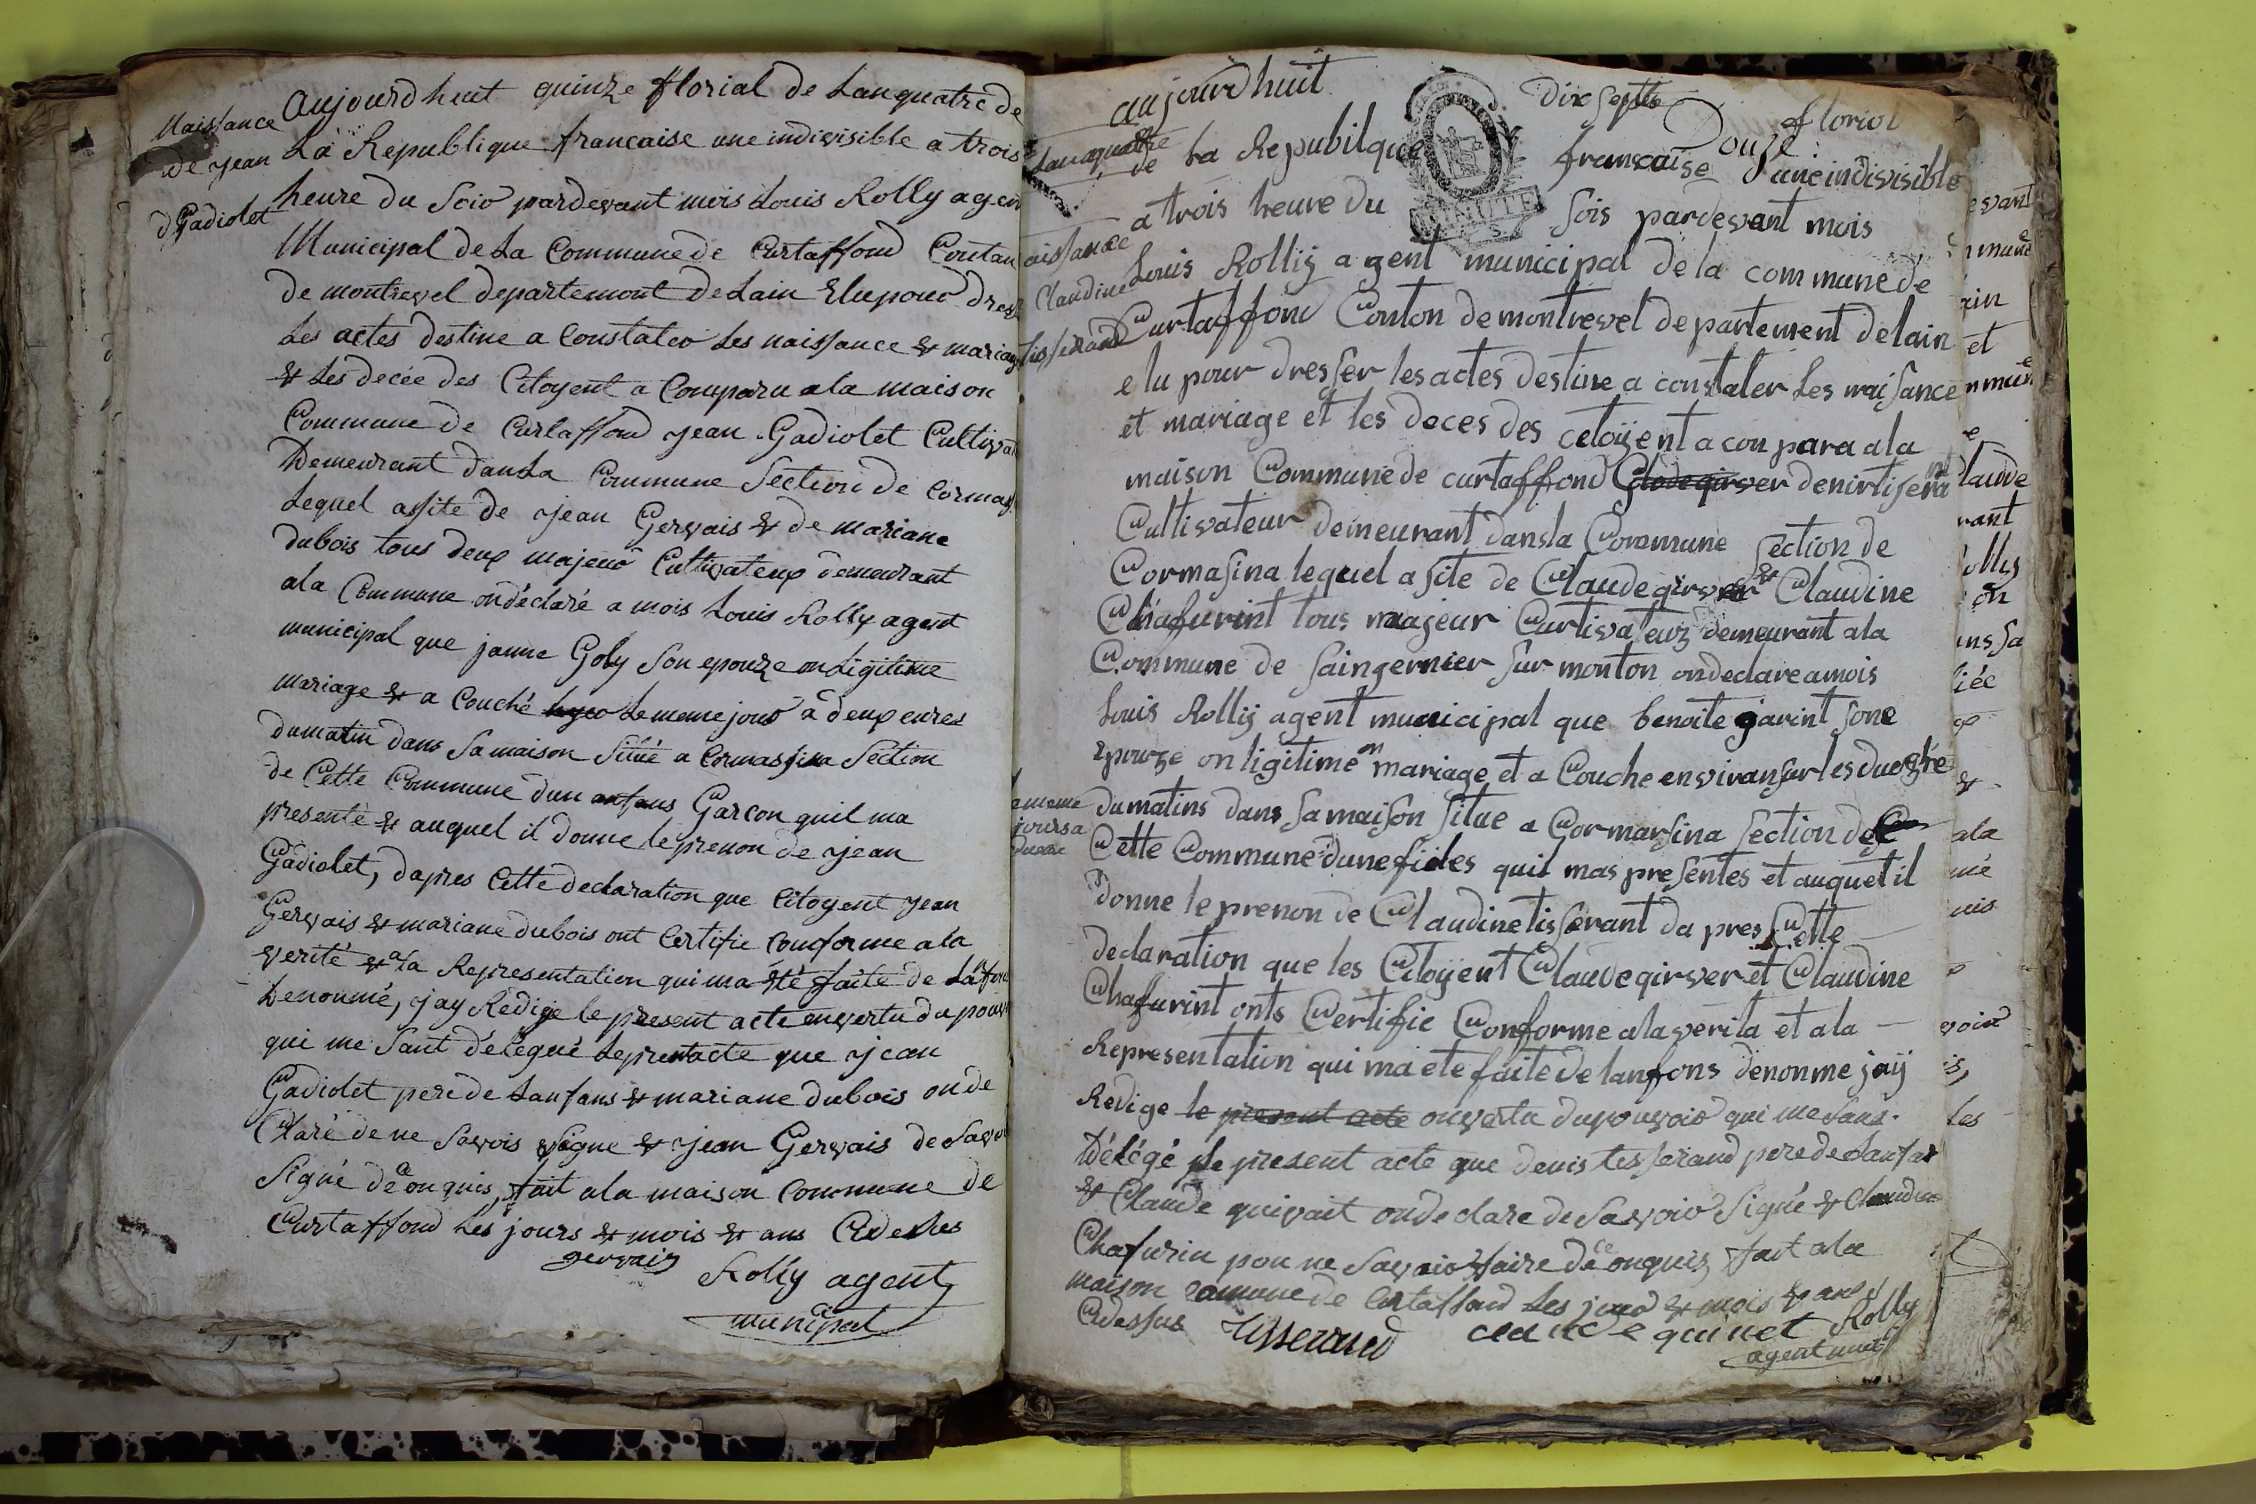 Naissance
de Jean
d Gadiolet
Aujourdhuit quinze florial de Lanquatre de
La Republique francaise une indivisible a trois
heure du Soir pardevant mois Louis Rolly agen
Municipal de La Commune de Curtaffond Contan
de montrevel departement de Lain Elupour dress
Les actes destine a Constater Les naissance & mariag
& Les decée des Citoyent a Comparu ala maison
Commune de Curtaffond Jean Gadiolet Cultiva
Demeurant dansLa Commune Section de Cormas
Lequel assite de Jean Gervais & de mariane
dubois tous deux majeur Cultivateux demeurant
ala Commune ondéclaré a mois Louis Rolly agent
municipal que janne Goly Son epouze on Ligitime
mariage & a Couché Le meme jour a deux eures
dumatin dans Sa maison Situé a Cormassina Section
de Cette Commune dun anfans Garcon quil ma
presenté & auquel il donne le prenon de Jean
Gadiolet, dapres Cette declaration que Citoyent Jean
Gervais & mariane dubois ont Certifie Conforme ala
verité & a la Representation qui ma été faite de Lanfans
denonmé, Jay Redige le present acte envertu du pouv
qui me Sant délégué Lepresntacte que Jean
Gadiolet pere de Lanfans & mariane dubois onde
Claré de ne Savois Signe & Jean Gervais de Savo
Signé de ce onquis, fait ala maison Commune de
Curtaffond Les jours & mois & ans Cidessus
gervais
Rolly agent
municipal
aujourdhuit Dix septe florial
Lanquatre de La Repubilque francaise Douze une indivisible
a trois heure du Sois pardevant mois
aissance
Claudine
tisserand
Louis Rollij agent municipal de la commune de
Curtaffond Conton de montrevel departement delain
elu pour dresser les actes destine a constater Les naisance
et mariage et les deces des cetoÿent a con para ala
maison Commune de curtaffond denirtiserant
Cultivateur demeurant dansla Commune Section de
Cormasina lequel a site de Claude girver & Claudine
Chafurint tous majeur Curtivateur demeurant ala
Commune de Saingernier Sur monton ondeclare amois
Louis Rollij agent municipal que benoite gavint Sone
epouze on ligitime en mariage et a Couche
ememe
jours a
dumatins dans Sa maison Situe a Cormarsina Section de
Cette Commune dune fides quil mas presentes et auquet il
donne le prenon de Claudine tisserant da pres Cette
declaration que les Citoÿent Claude girver et Claudine
Chafurint onts Certifie Conforme ala verita et ala
Representation qui ma ete faite de lanfons denonme jaij
Redige le present acte onvertu dupouvoir qui me Sans
Délégé Le present acte que denis tesserand pere de Lanfas
& Claude quivait onde clare de Savoir Signé & Claudine
Chafurin pou ne Savoir faire de ce onquis, fait ala
maison comune de Curtaffond Les jour & mois & ans
Cidessus
Tisserand
claude quinet
Rolly
agent muni